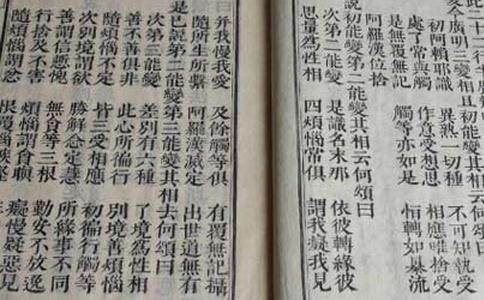 此二十二行
次廣明三變相且初能變其相云何頌曰
初阿賴耶識 異熟一切種 不可知執受
處了常與觸 作意受想思 相應唯捨受
是無覆無記 觸等亦如是 恒轉如暴流
阿羅漢位捨
初能變第二能變其相云何頌曰
次第二能變 是識名末那 依彼轉緣彼
思量為性相 四煩惱常俱 謂我癡我見
并我慢我愛 及餘觸等俱 有覆無記攝
隨所生所繫 阿羅漢滅定 出世道無有
是已說第二能變第三能變其相云何頌曰
次第三能變 差別有六種 了境為性相
善不善俱非 此心所徧行 別境善煩惱
隨煩惱不定 皆三受相應 初徧行觸等
次別境謂欲 勝解念定慧 所緣事不同
善謂信慚愧 無貪等三根 勤安不放逸
行捨及不害 煩惱謂貪瞋 癡慢疑惡見
隨煩惱謂忿